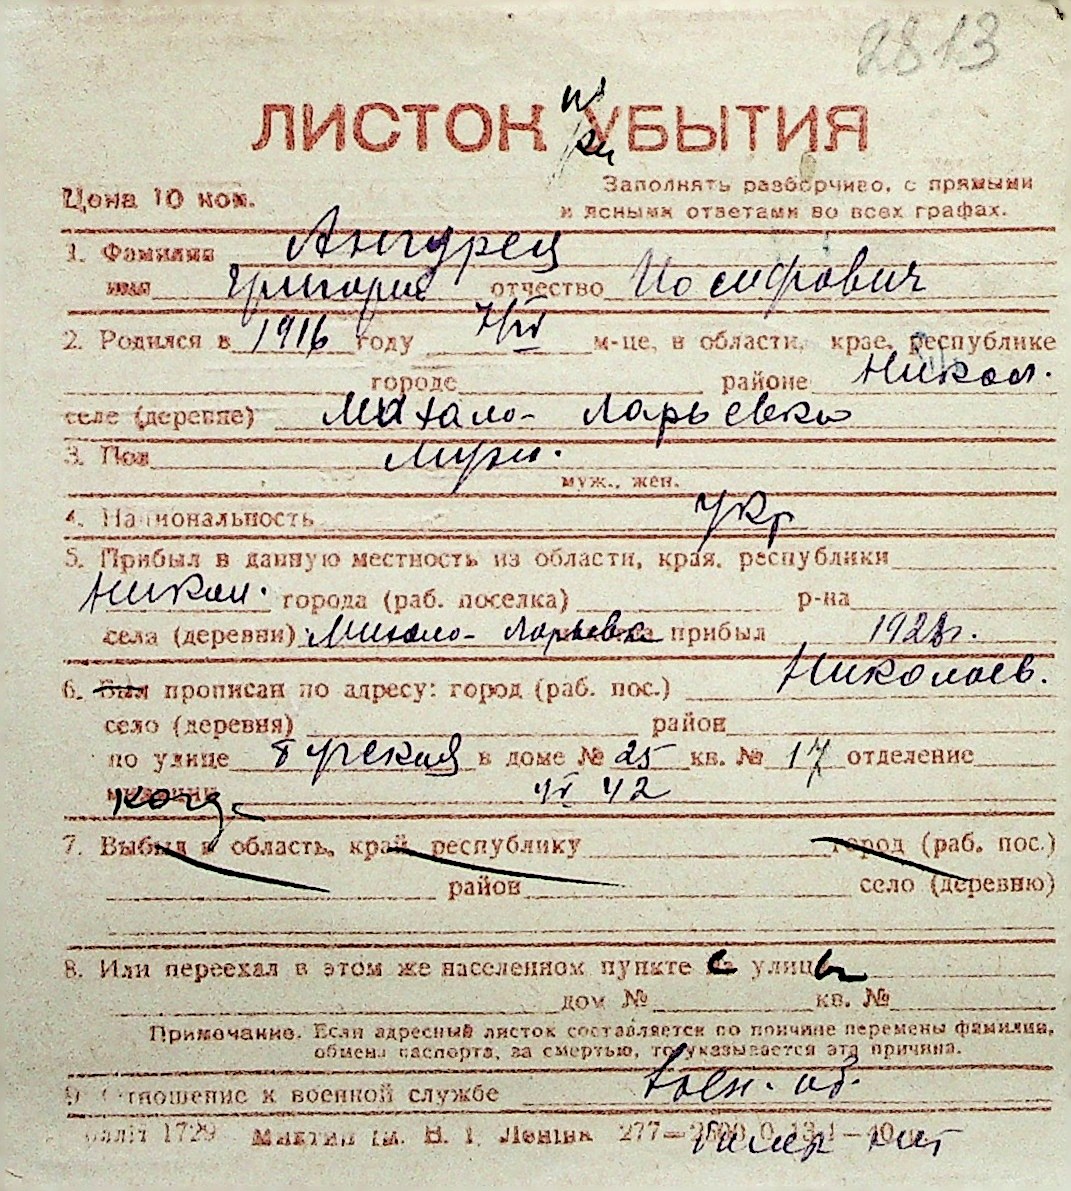 2813
ЛИСТОК УБЫТИЯ
при
Цена 10 коп.
Заполнять разборчиво, с прямыми
и ясными ответами во всех графах.
1. Фамилия Ангурец
имя Григорий отчество Иосифович
2. Родился в 1916 году 7/IV м-це, в области, крае, республике
городе районе Никол.
селе (деревне) Михало- Ларьевка
3. Пол муж.
муж., жен.
4. Национальность Укр
5. Прибыл в данную местность из области, края, республики
Никол. города (раб. поселка) р-на
села (деревни) Михало- Ларьевка прибыл 1928г.
6. Был прописан по адресу: город (раб. пос.) Николаев.
село (деревня) район
по улице Турская в доме № 25 кв. № 17 отделение
милиции когда 42
7. Выбыл в область, край, республику город (раб. пос.)
район село (деревню)
8. Или переехал в этом же населенном пункте с улицы
дом № кв. №
Примечание. Если адресный листок составляется по причине перемены фамилии,
обмена паспорта, за смертью, то указывается эта причина.
9. Отношение к военной службе Воен. об.
1729 им. В. І. Леніна 277—